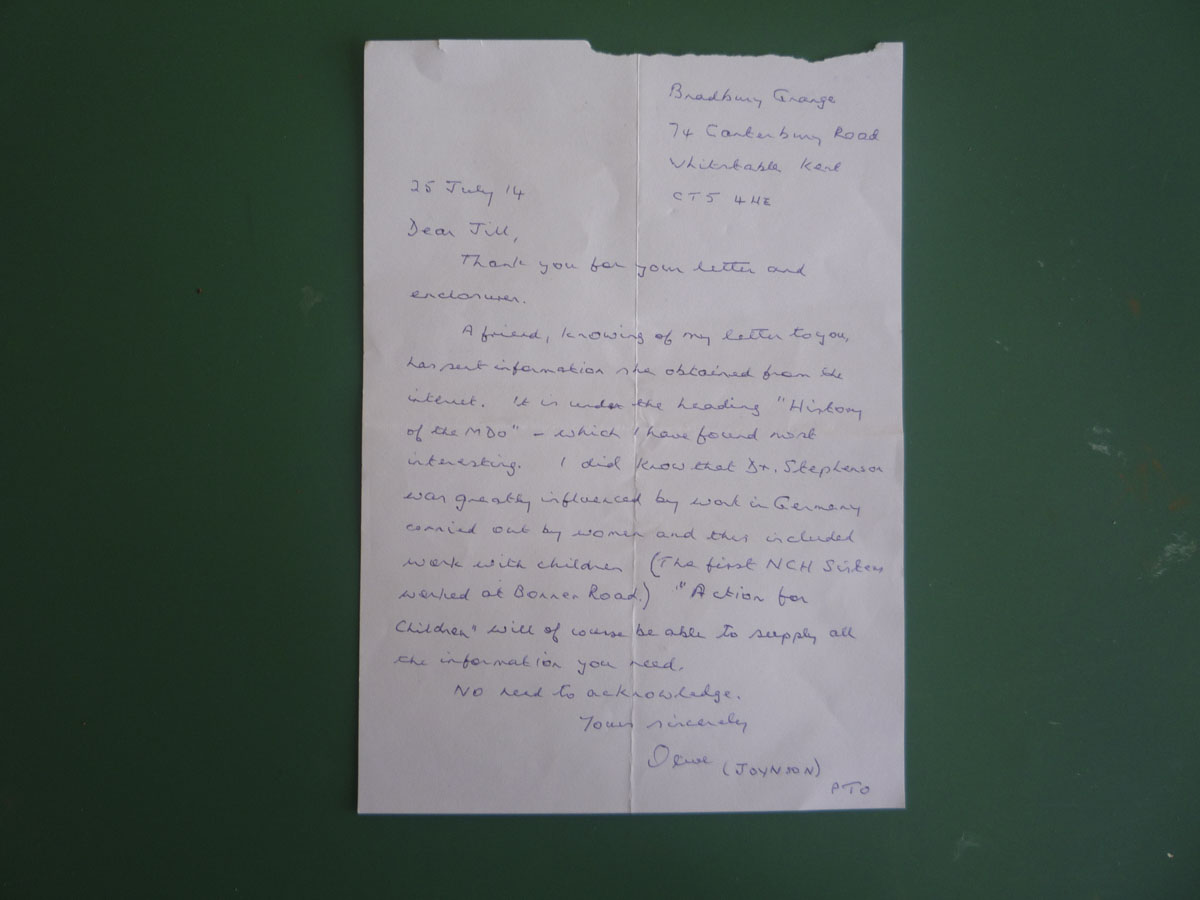 Bradbury Grange
74 Canterbury Road
Whitstable Kent
CT5 4HE
25 July 14
Dear Jill,
Thank you for your letter and
enclosures.
A friend, knowing of my letter to you,
has sent information she obtained from the
internet. It is under the heading "History
of the MDO" - which I have found most
interesting. I did know that Dr. Stephenson
was greatly influenced by work in Germany
carried out by women and this included
work with children (The first NCH Sisters
worked at Bonner Road.) "Action for
Children" will of course be able to supply all
the information you need.
No need to acknowledge.
Yours sincerely
(JOYNSON)
PTO